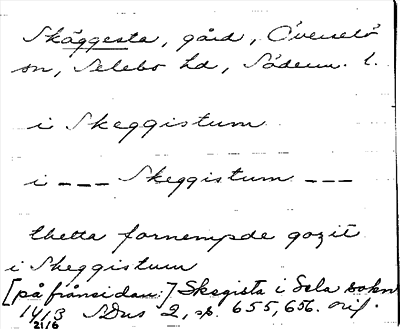 Skäggesta, gård, Överselö
sn, Selebo hd, Söderm. l.
i Skeggistum
i --- Skeggistum ---
thetta fornempde gozit
i Skeggistum
[på frånsidan:] Skegista i Sela sokn
1413 SDns 2, s. 655, 656. orig.
21/6